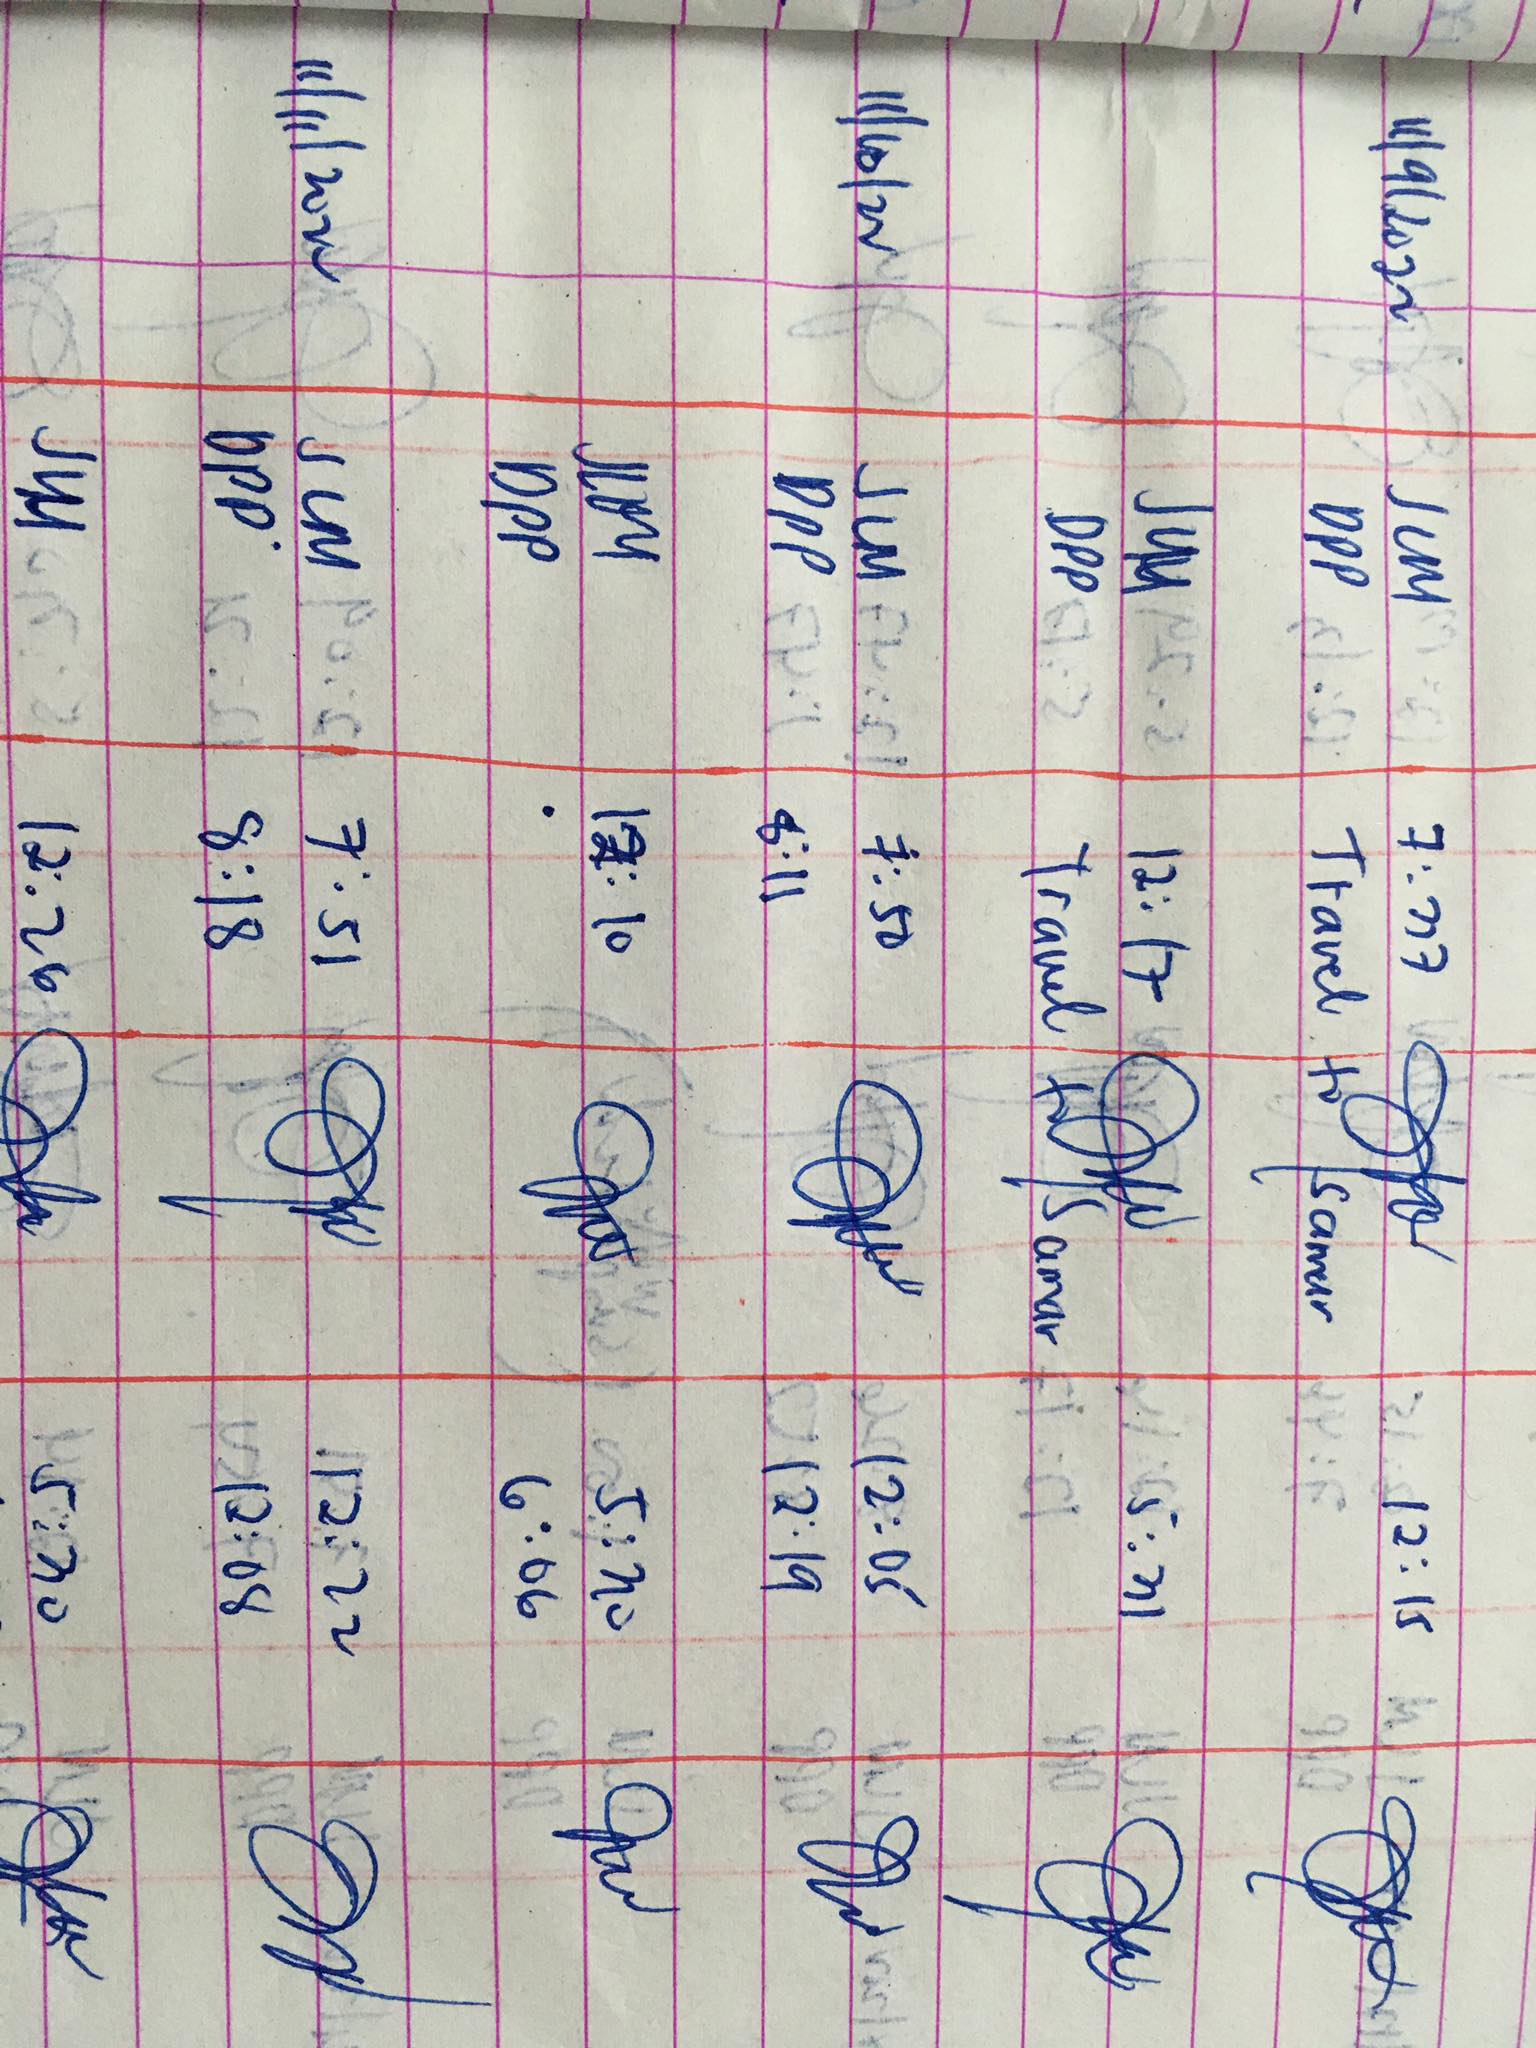 11/9/2022 JLM 7:27 12:15
DPP Travel to Samar
JLM 12:17 5:21
DPP Travel to Samar
11/10/22 JLM 7:50 12:05
DPP 8:11 12:19
JLM 12:10 5:20
DPP 6:06
11/11/2022 JLM 7:51 12:22
DPP 8:18 12:08
JLM 12:29 5:20